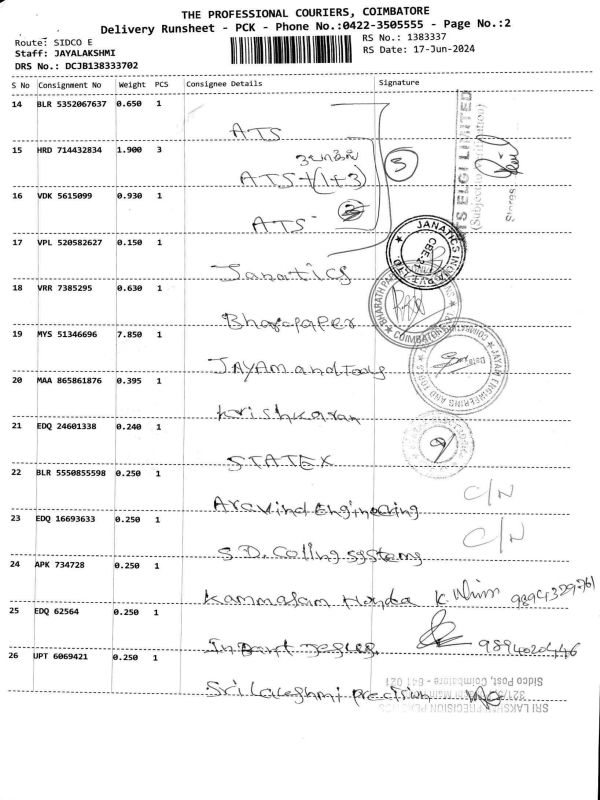 THE PROFESSIONAL COURIERS, COIMBATORE
Delivery Runsheet - PCK - Phone No.:0422-3505555 - Page No.:2
Route: SIDCO E
RS No.: 1383337
Staff: JAYALAKSHMI
RS Date: 17-Jun-2024
DRS No.: DCJB138333702
S No Consignment No Weight PCS Consignee Details Signature
14 BLR 5352067637 0.650 1
ATS
15 HRD 714432834 1.900 3
ATS (1+3)
3
16 VDK 5615099 0.930 1
ATS
17 VPL 520582627 0.150 1
Janatics
18 VRR 7385295 0.630 1
Bharapaper
19 MYS 51346696 7.850 1
JAYAM and Tools
20 MAA 865861876 0.395 1
Krishkaran
21 EDQ 24601338 0.240 1
STATEX
22 BLR 5550855598 0.250 1
Aravind Engineering
C/N
23 EDQ 16693633 0.250 1
S.D. Coling Systems
C/N
24 APK 734728 0.250 1
Kammadam Honda
25 EDQ 62564 0.250 1
9894020446
26 UPT 6069421 0.250 1
Sri Lakshmi precision
ATS ELGI LIMITED
Stores
JANATICS INDIA PVT LTD
CBE-21
COIMBATORE
JAYAM ENGINEERING AND TOOLS
COIMBATORE
Sidco Post, Coimbatore - 641 021
SRI LAKSHMI PRECISION